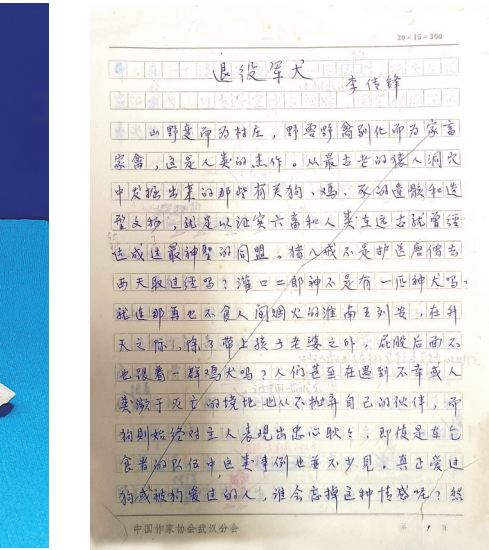 20×15=300
退役军犬
李传锋
山野变而为村庄，野兽野禽别化而为家畜
家禽，这是人类的杰作。从最古老的猿人洞穴
中发掘出来的那些有关狗、鸡、豕的遗骸和造
型文物，就足以证实六畜和人类在远古就曾经
达成过最神圣的同盟。猪八戒不是护送唐僧去
西天取过经吗？灌口二郎神不是有一匹神犬吗，
就连那再也不食人间烟火的淮南王刘安，在升
天之际，除了带上孩子老婆之外，屁股后面不
也跟着一群鸡犬吗？人们甚至在遇到不幸或人
类濒于灭亡的境地也从不抛弃自己的伙伴，而
狗则始终对主人表现出忠心耿々，即使是在乞
食者的队伍中这类事例也并不少见。真正爱过
狗或被狗爱过的人，谁会忘掉这种情感呢？然
中国作家协会武汉分会
第 1 页